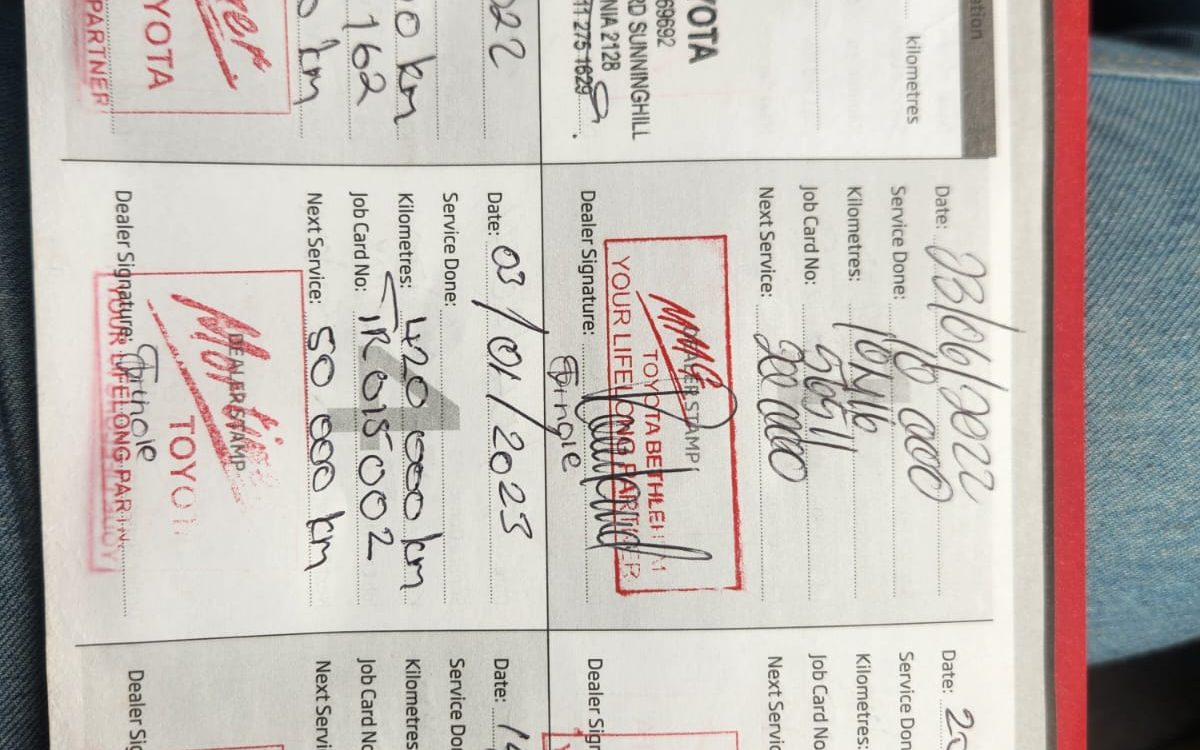 kilometres
YOTA
69692
RD SUNNINGHILL
NIA 2128
11 275 1629
Date: 23/06/2022
Service Done: 10 000
Kilometres:
Job Card No:
Next Service: 20 000
DEALER STAMP
MMG
TOYOTA BETHLEH M
YOUR LIFELONG PARTNER
Dealer Signature:
Date: 03/01/2023
Service Done:
Kilometres: 420 000 km
Job Card No: TR015002
Next Service: 50 000 km
DEALER STAMP
TOYOT
YOUR LIFELONG PARTN
Dealer Signature:
022
0 km
162
0 km
YOTA
PARTNER
Date: 20
Service Don
Kilometres:
Job Card No
Next Servic
Dealer Sign
Date: 14
Service Don
Kilometres
Job Card No
Next Servi
Dealer Sig